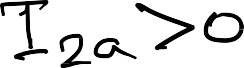 I_{2a} > 0